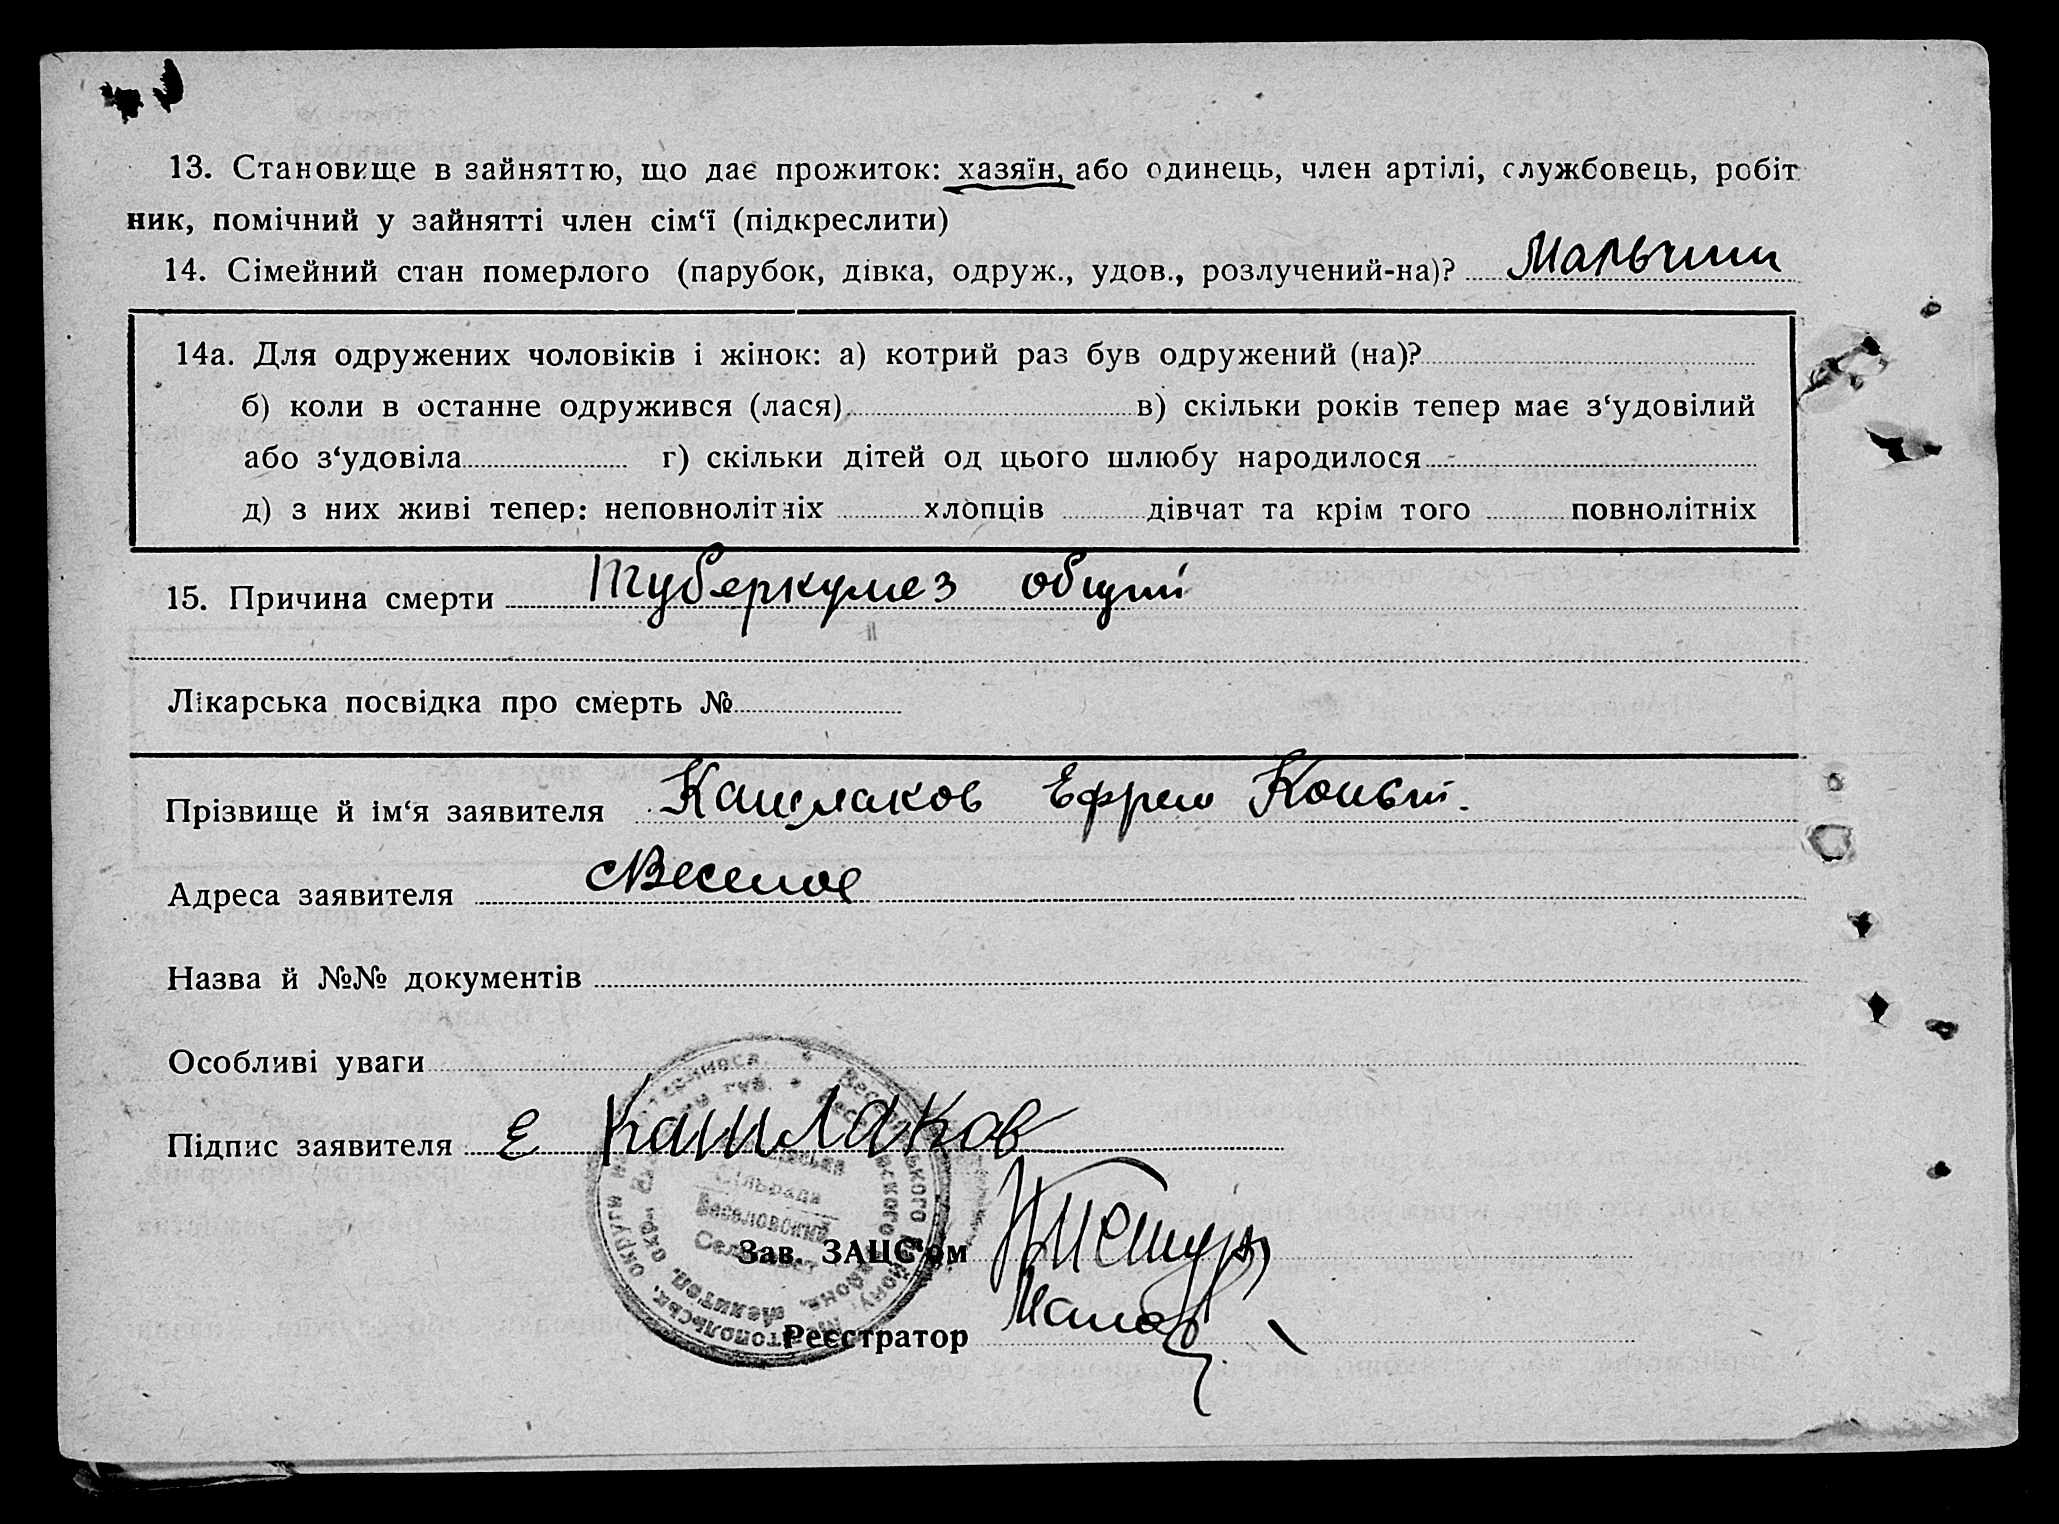 13. Становище в зайняттю, що дає прожиток: хазяїн, або одинець, член артілі, службовець, робіт
ник, помічний у зайнятті член сім‘ї (підкреслити)
14. Сімейний стан померлого (парубок, дівка, одруж., удов., розлучений-на)?
14а. Для одружених чоловіків і жінок: а) котрий раз був одружений (на)?
б) коли в останнє одружився (лася) в) скільки років тепер має з‘удовілий
або з‘удовіла г) скільки дітей од цього шлюбу народилося
д) з них живі тепер: неповнолітніх хлопців дівчат та крім того повнолітніх
15. Причина смерти Туберкулез общий
Лікарська посвідка про смерть №
Прізвище й ім‘я заявителя Кашлаков Ефрем
Адреса заявителя с Веселое
Назва й №№ документів
Особливі уваги
Підпис заявителя Е Кашлаков
Сільрада
Веселовский
Сельсовет
Зав. ЗАЦС‘ом
Реєстратор